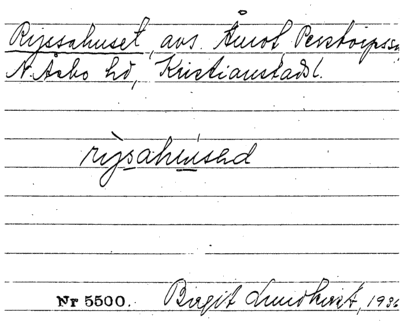 Ryssahuset, avs. Åmot Perstorps sn,
N. Åsbo hd, Kristianstads l.
rỳsahu̇səd
Nr 5500. Birgit Lundkvist, 1936